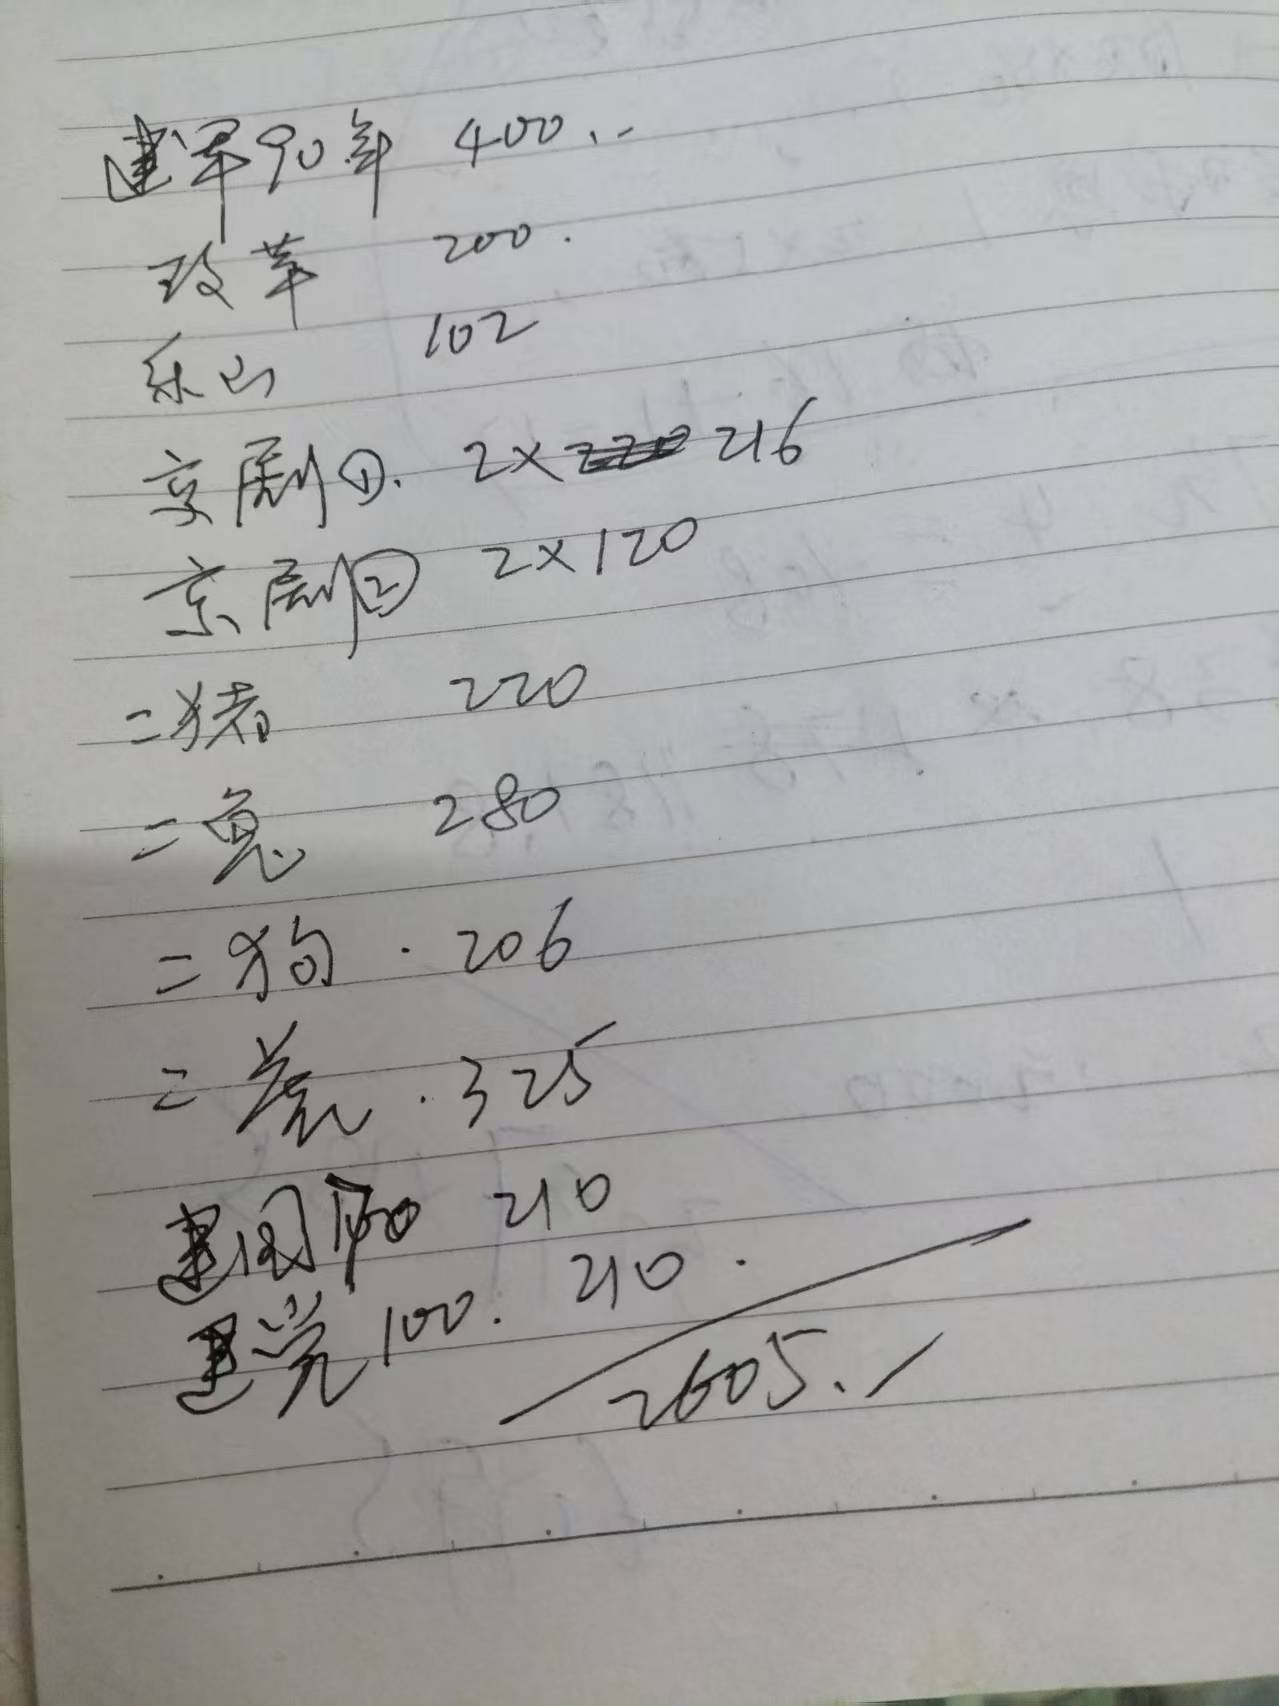 建军90年 400.-
改革 200.
乐山 102
京剧①. 2×216
京剧② 2×120
二猪 220
二兔 280
二狗. 206
二虎.325
建国70 210
建党100. 210.
2605.